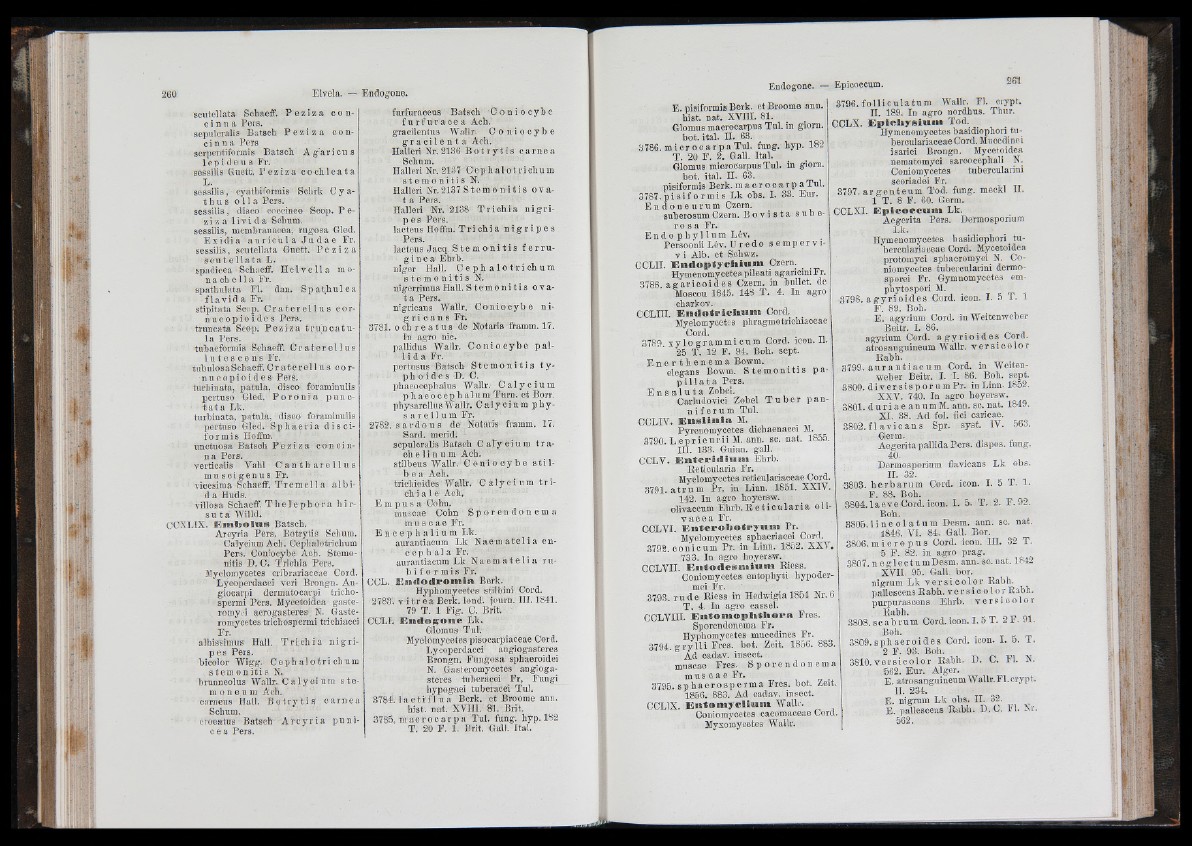 260 Elvela. — Endogone.
scutellata Schaeff. Peziza con-
cinna Pers.
sepulcralis Batsch Peziza con-
cinna Pers
serpentiformis Batsch Agaricus
lepideus Fr.
sessilis Guett. Peziza cochleata
L.
sessilis, cyathiformis Schrk Cya-
thus olla Pers.
sessilis, disco coccineo Scop. Pe-
ziza livida Schum.
sessilis, membranacea, rugosa Gled.
Exidia auricula Judae Fr.
sessilis, scutellata Guett. Peziza
scutellata L.
spadicea Schaeff. Helvella mo-
nachella Fr.
spathulata Fl. dan. Spathulea
flavida Fr.
stipitata Scop. Craterellus cor-
nucopioides Pers.
truncata Scop. Peziza truncatu-
la Pers.
tubaeformis Schaeff. Craterellus
lutescens Fr.
tubulosa Schaeff. Craterellus cor-
nucopioides Pers.
turbinata, patula, disco foraminulis
pertuso Gled. Poronia punc-
tata Lk.
turbinata, patula, disco foraminulis
pertuso Gled. Sphaeria disci-
formis Hoffm.
unctuosa Batsch Peziza concin-
na Pers.
verticalis Vahl Cantharellus
muscigenus Fr.
vicesima Schaeff. Tremella albi-
da Huds.
villosa Schaeff. Thelephora hir-
suta Willd.
CCXLIX. Embolus Batsch.
Arcyria Pers. Botrytis Schum.
Calycium Ach. Cephalotrichum
Pers. Coniocybe Ach. Stemo-
nitis D. C. Trichia Pers.
Myelomycetes cribrariaceae Cord.
Lycoperdacei veri Brongn. An-
giocarpi dermatocarpi tricho-
spermi Pers. Mycetoidea gaste-
romyci aerogasteres N. Gaste-
romycetes trichospermi trichiacei
Fr.
albissimus Hall. Trichia nigri-
pes Pers.
bicolor Wigg. Cephalotrichum
stemonitis N.
brunneolus Wallr. Calycium ste-
moneum Ach.
corneus Hall. Botrytis carnea
Schum.
crocatus Batsch Arcyria puni-
cea Pers.
furfuraceus Batsch Coniocybe
furfuracea Ach.
gracilentus Wallr. Coniocybe
gracilenta Ach.
Halleri Nr. 2136 Botrytis carnea
Schum.
Halleri Nr. 2137 Cephalotrichum
stemonitis N.
Halleri Nr. 2137 Stemonitis ova-
ta Pers.
Halleri Nr. 2138 Trichia nigri-
pes Pers.
lacteus Hoffm. Trichia nigripes
Pers.
lacteus Jacq Stemonitis ferru-
ginea Ehrb.
niger Hall. Cephalotrichum
stemonitis N.
nigerrimus Hall. Stemonitis ova-
ta Pers.
nigricans Wallr. Coniocybe ni-
gricans Fr.
3781. ochreatus de Notaris framm. 17.
In agro nic.
pallidus Wallr. Coniocybe pal-
lida Fr.
pertusus Batsch Stemonitis ty-
phoides D. C.
phaeocephalus Wallr. Calycium
phaeocephalum Turn. et Borr.
physarellus Wallr. Calycium phy-
sarellum Fr.
2782. sardous de Notaris framm. 17.
Sard. merid.
sepulcralis Batsch Calycium tra-
chelinum Ach.
stilbeus Wallr. Coniocybe stil-
bea Ach.
trichioides Wallr. Calycium tri-
chiale Ach.
Empusa Cohn.
muscae Cohn Sporendonema
muscae Fr.
Encephalium Lk.
aurantiacum Lk Naematelia en-
cephala Fr.
aurantiacum Lk Naematelia ru-
biformis Fr.
CCL. Endodromia Berk.
Hyphomycetes stilbini Cord.
2783. vitrea Berk. lond. journ. III. 1841.
79 T. 1 Fig. C. Brit.
CCLI. Endogone Lk.
Glomus Tul.
Myelomycetes pisocarpiaceae Cord.
Lycoperdacei angiogasteres
Brongn. Fungosa sphaeroidei
N. Gasteromycetes angioga-
steres tuberacei Fr. Fungi
hypogaei tuberacei Tul.
3784. lactiflua Berk. et Broome ann.
hist. nat. XVIII. 81. Brit.
3785. macrocarpa Tul. fung. hyp. 182
T. 20 F. 1. Brit. Gall. Ital.
Endogone. — Epicoccum. 261
E. pisiformis Berk. et Broome ann.
hist. nat. XVIII. 81.
Glomus macrocarpus Tul. in giorn.
bot. ital. II. 63.
3786. microcarpa Tul. fung. hyp. 182
T. 20 F. 2. Gall. Ital.
Glomus microcarpus Tul. in giorn.
bot. ital. II. 63.
pisiformis Berk. macrocarpa Tul.
3787. pisiformis Lk obs. I. 33. Eur.
Endoneurum Czern.
suberosum Czern. Bovista sube-
rosa Fr.
Endophyllum Lév.
Persoonii Lév. Uredo sempervi-
vi Alb. et Schwz.
CCLII. Endoptychium Czern.
Hymenomycetes pileati agaricini Fr.
3788. agaricoides Czern. in bullet. de
Moscou 1845. 148 T. 4. In agro
charkov.
CCLIII. Endotrichum Cord.
Myelomycetes phragmotrichiaceae
Cord.
3789. xylogrammicum Cord. icon. II.
25 T. 12 F. 94. Boh. sept.
Enerthenema Bowm.
elegans Bowm. Stemonitis pa-
pillata Pers.
Ensaluta Zobel.
Carludovici Zobel Tuber pan-
niferum Tul.
CCLIV. Enslinia M.
Pyrenomycetes dichaenacei M.
3790. Leprieurii M. ann. sc. nat. 1855.
III. 133. Guian. gall.
CCLV. Enteridium Ehrb.
Reticularia Fr.
Myelomycetes reticulariaceae Cord.
3791. atrum Pr. in Linn. 1851. XXIV.
142. In agro hoyersw.
olivaceum Ehrb. Reticularia oli-
vacea Fr.
CCLVI. Enterobotryum Pr.
Myelomycetes sphaeriacei Cord.
3792. conicum Pr. in Linn. 1852. XXV.
733. In agro hoyersw.
CCLVII. Entodesmium Riess.
Coniomycetes entophyti hypoder-
mei Fr.
3793. rude Riess in Hedwigia 1854 Nr. 6
T. 4. In agro cassel.
CCLVIII. Entomophthora Fres.
Sporendonema Fr.
Hyphomycetes mucedines Fr.
3794. grylli Fres. bot. Zeit. 1856. 883.
Ad cadav. insect.
muscae Fres. Sporendonema
muscae Fr.
3795. sphaerosperma Fres. bot. Zeit.
1856. 883. Ad cadav. insect.
CCLIX. Entomyclium Wallr.
Coniomycetes caeomaceae Cord.
Myxomycetes Wallr.
3796. folliculatum Wallr. Fl. crypt.
II. 189. In agro nordhus. Thur.
CCLX. Epichysium Tod.
Hymenomycetes basidiophori tu-
berculariaceae Cord. Mucedinei
isariei Brongn. Mycetoidea
nematomyci sarcocephali N.
Coniomycetes tubercularini
scoriadei Fr.
3797. argenteum Tod. fung. meckl II.
1 T. 8 F. 60. Germ.
CCLXI. Epicoccum Lk.
Aegerita Pers. Dermosporium
Lk.
Hymenomycetes basidiophori tu-
berculariaceae Cord. Mycetoidea
protomyci sphaeromyci N. Co-
niomycetes tubercularini dermo-
sporei Fr. Gymnomycetes em-
phytospori M.
3798. agyrioides Cord. icon. I. 5 T. 1
F. 89. Boh.
E. agyrium Cord. in Weitenweber
Beitr. I. 86.
agyrium Cord. agyrioides Cord.
atrosanguineum Wallr. versicolor
Rabh.
3799. aurantiacum Cord. in Weiten-
weber Beitr. I. I. 86. Boh. sept.
3800. diversisporum Pr. in Linn. 1852.
XXV. 740. In agro hoyersw.
3801. duriaeanum M. ann. sc. nat. 1849.
XI. 38. Ad fol. fici caricae.
3802. flavicans Spr. syst. IV. 563.
Germ.
Aegerita pallida Pers. dispos. fung.
40.
Dermosporium flavicans Lk obs.
II. 32.
3803. herbarum Cord. icon. I. 5 T. 1.
F. 88. Boh.
3804. laeve Cord. icon. I. 5. T. 2. F. 92.
Boh.
3805. lineolatum Desm. ann. sc. nat.
1846. VI. 84. Gall. Bor.
3806. micropus Cord. icon. III. 32 T.
5 F. 82. in agro prag.
3807. neglectum Desm. ann. sc. nat. 1842
XVII. 95. Gall. bor.
nigrum Lk versicolor Rabh.
pallescens Rabh. versicolor Rabh.
purpurascens Ehrb. versicolor
Rabh.
3808. scabrum Cord. icon. I. 5 T. 2 F. 91.
Boh.
3809. sphaeroides Cord. icon. I. 5. T.
2 F. 93. Boh.
3810. versicolor Rabh. D. C. Fl. N.
562. Eur. Alger.
E. atrosanguineum Wallr. Fl. crypt.
II. 234.
E. nigrum Lk obs. II. 32.
E. pallescens Rabh. D. C. Fl. Nr.
562.